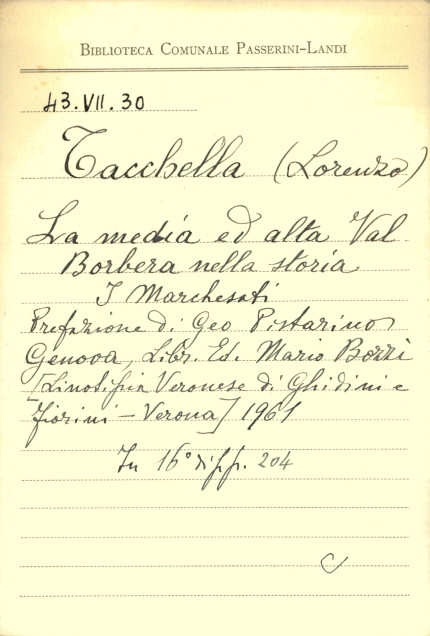 BIBLIOTECA COMUNALE PASSERINI-LANDI
43.VII.30
Tacchella (Lorenzo)
La media ed alta Val
Borbera nella storia
I Marchesati
Prefazione di Geo Pistarino
Genova, Libr. Ed. Mario Bozzi
[Linotipia Veronese di Ghidini e
Fiorini – Verona] 1961
In 16° di pp. 204